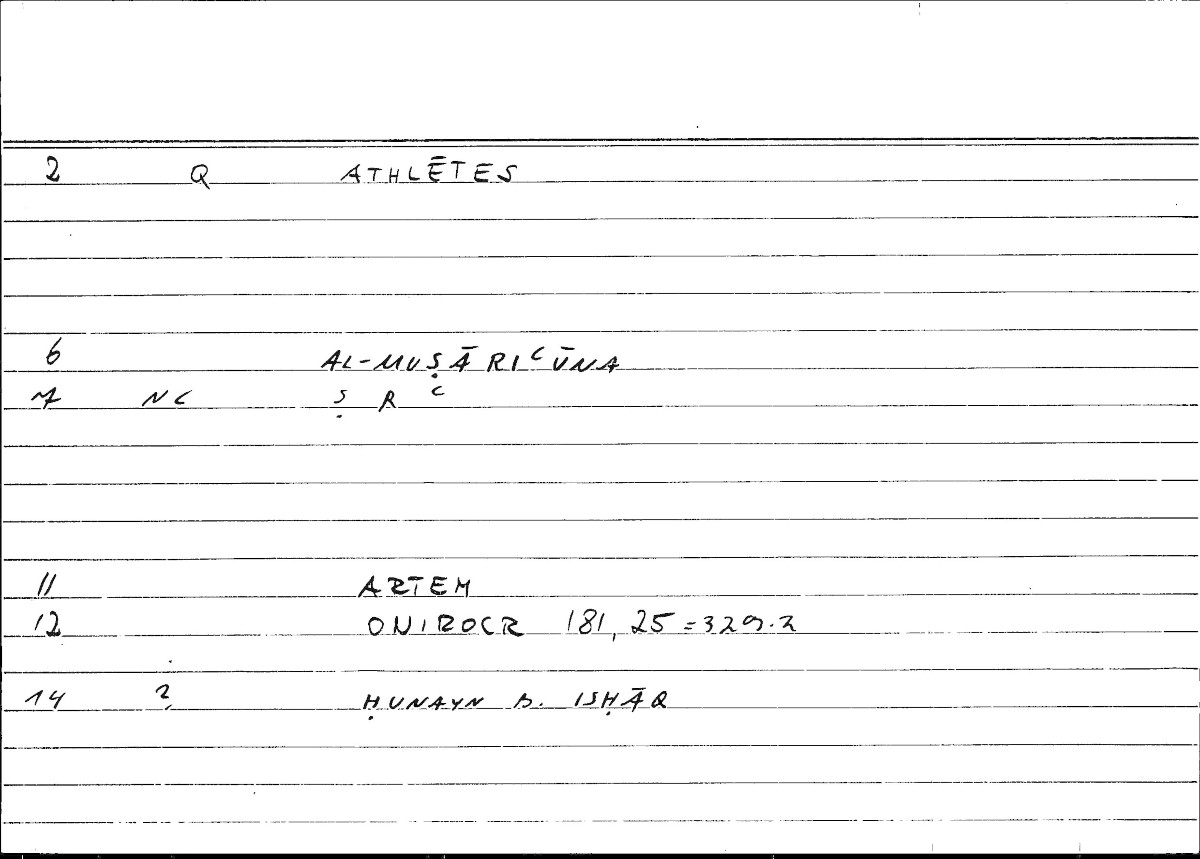 2 Q ATHLĒTES
6 AL-MUṢĀRIʿŪNA
7 NC Ṣ R ʿ
11 ARTEM
12 ONIROCR 181, 25 = 329.2
14 2 ḤUNAYN B. ISḤĀQ